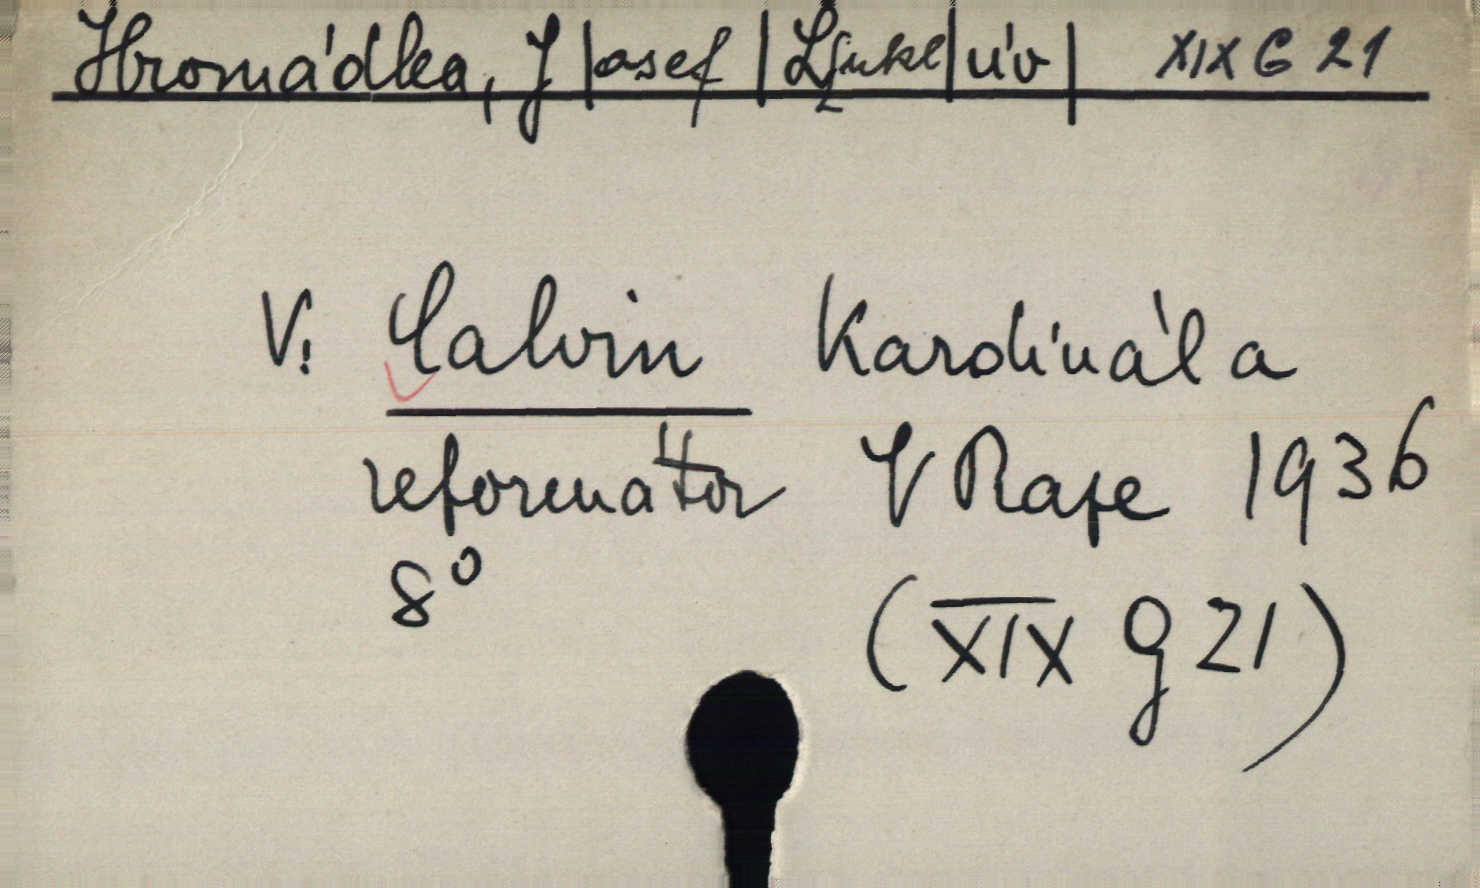 Hromádka, J|osef| L|ukl|úv| XIX G 21
V: Calvin Kardinál a
reformátor V Praze 1936
8°
(XIX G 21)